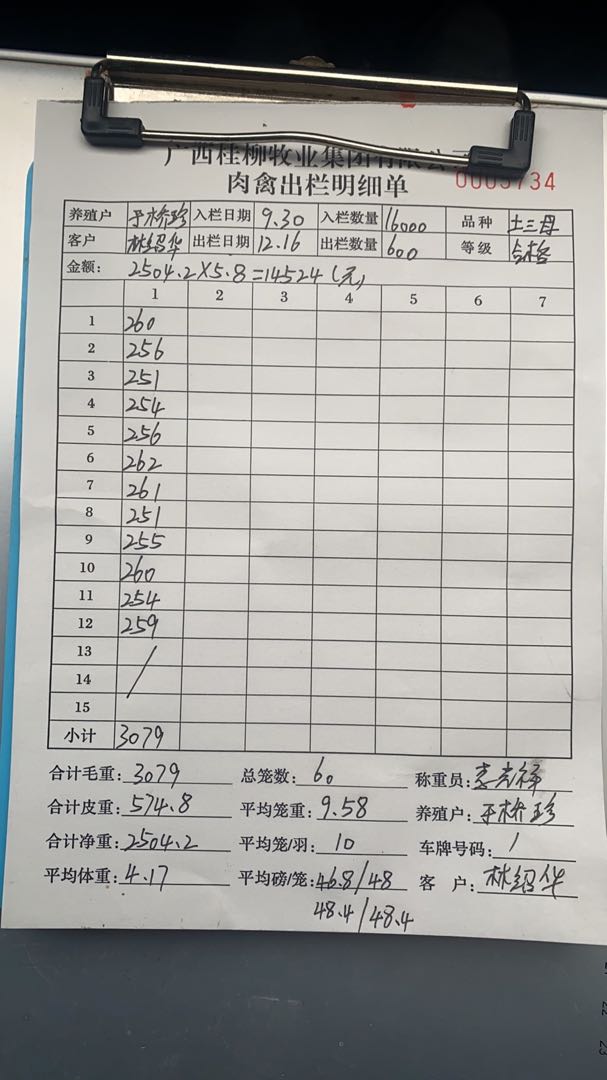 广西桂柳牧业集团有限公
肉禽出栏明细单 0005734
养殖户 于桥珍 入栏日期 9.30 入栏数量 16000 品种 土三母
客户 林绍华 出栏日期 12.16 出栏数量 600 等级 合格
金额: 2504.2×5.8=14524(元)
1 2 3 4 5 6 7
1 260
2 256
3 251
4 254
5 256
6 262
7 261
8 251
9 255
10 260
11 254
12 259
13
14 /
15
小计 3079
合计毛重: 3079 总笼数: 60 称重员:
合计皮重: 574.8 平均笼重: 9.58 养殖户: 于桥珍
合计净重: 2504.2 平均笼/羽: 10 车牌号码: /
平均体重: 4.17 平均磅/笼: 46.8/48 客 户: 林绍华
48.4/48.4